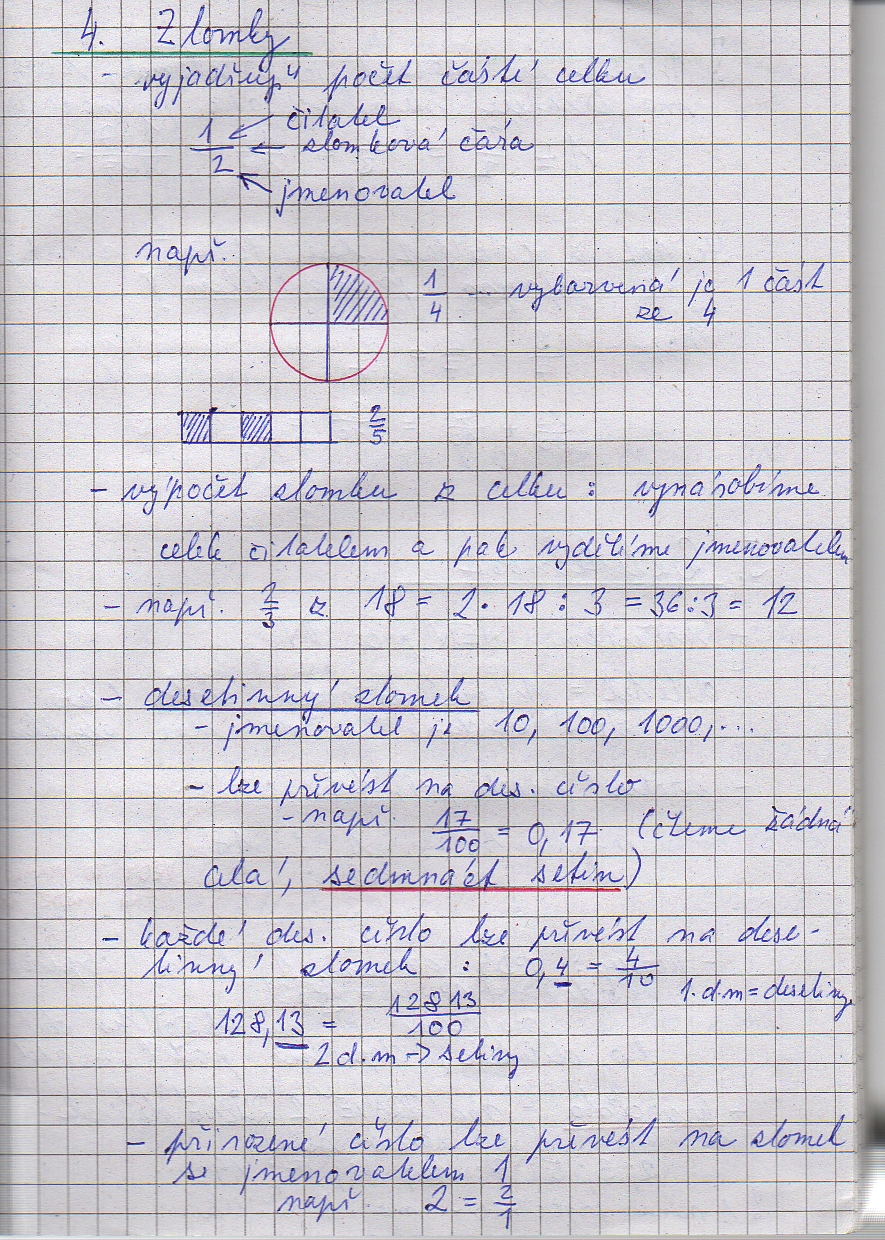 4. Zlomky
- vyjadřují počet částí celku
1/2 čitatel
zlomková čára
jmenovatel
např.
1/4 ... vybarvená je 1 část
ze 4
2/5
- výpočet zlomku z celku : vynásobíme
celek čitatelem a pak vydělíme jmenovatelem
- např. 2/3 z 18 = 2 · 18 : 3 = 36 : 3 = 12
- desetinný zlomek
- jmenovatel je 10, 100, 1000, ...
- lze převést na des. číslo
- např. 17/100 = 0,17 (čteme žádná
celá, sedmnáct setin)
- každé des. číslo lze převést na dese-
tinný zlomek : 0,4 = 4/10
1. d.m = desetiny
128,13 = 12813/100
2 d.m -> setiny
- přirozené číslo lze převést na zlomek
se jmenovatelem 1
např. 2 = 2/1